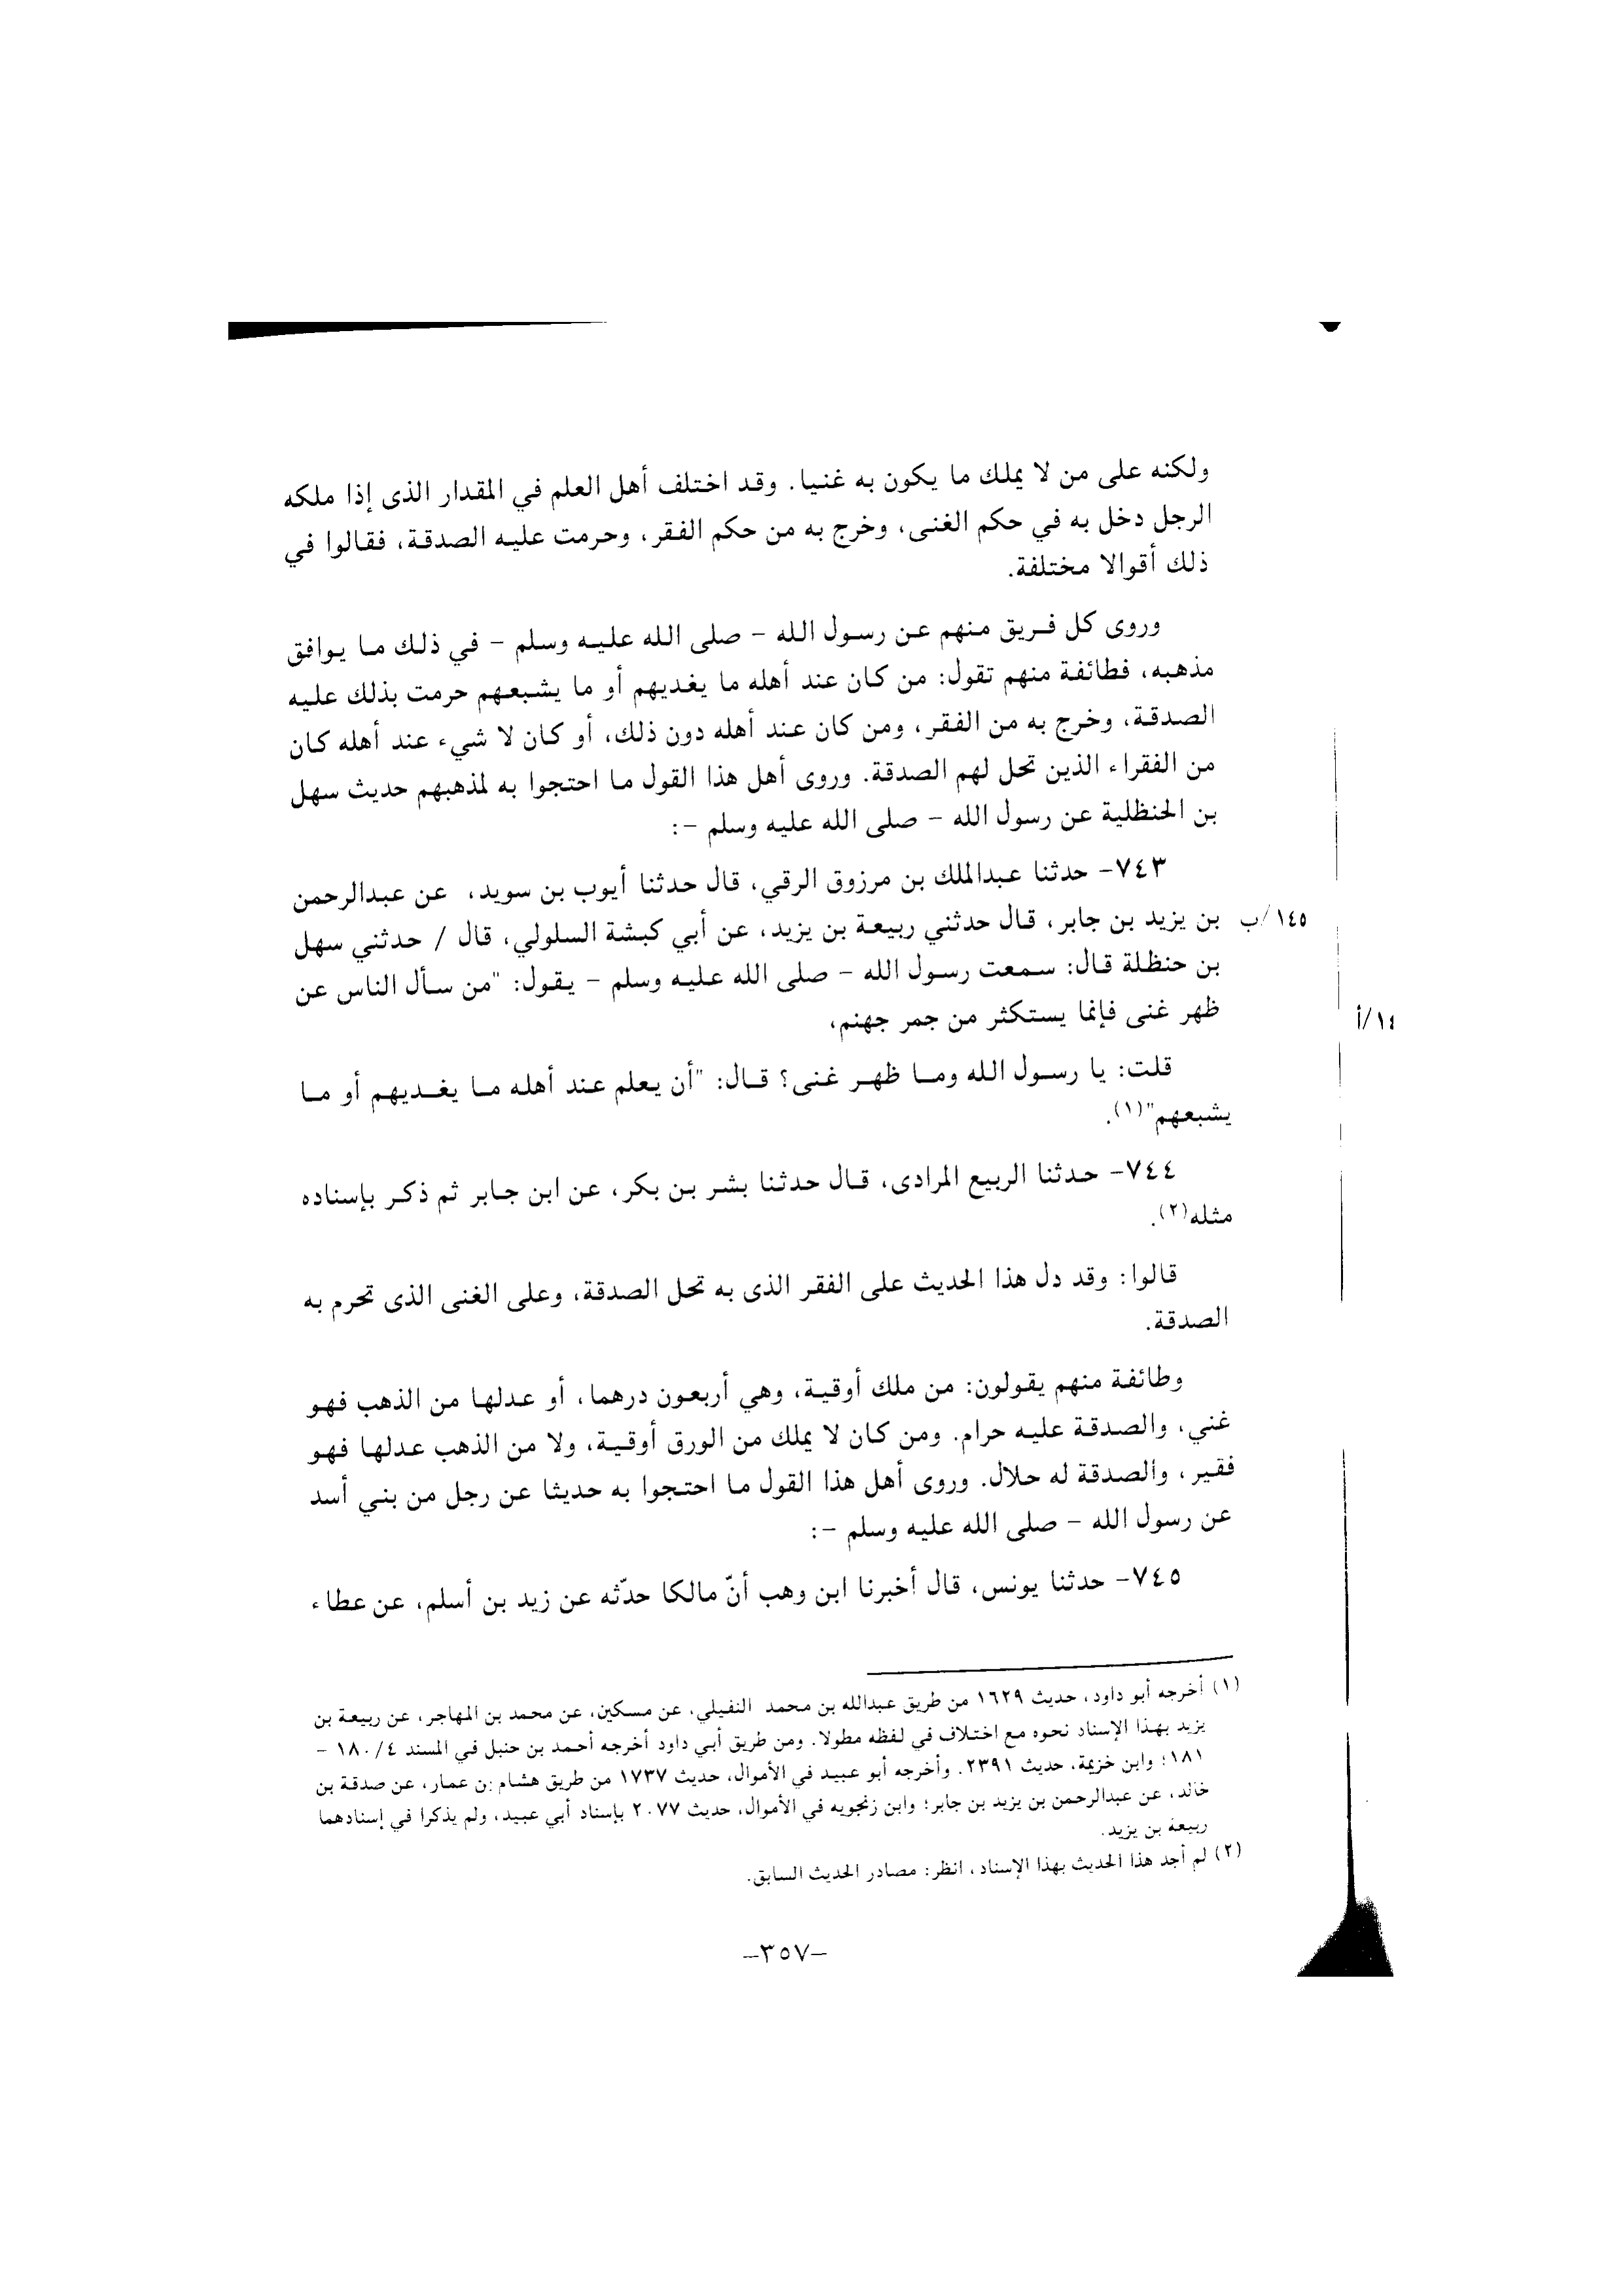 ولكنه على من لا يملك ما يكون به غنيا. وقد اختلف أهل العلم في المقدار الذى إذا ملكه
الرجل دخل به في حكم الغنى، وخرج به من حكم الفقر، وحرمت عليه الصدقة، فقالوا في
ذلك أقوالا مختلفة.
وروى كل فريق منهم عن رسول الله - صلى الله عليه وسلم - في ذلك ما يوافق
مذهبه، فطائفة منهم تقول: من كان عند أهله ما يغديهم أو ما يشبعهم حرمت بذلك عليه
الصدقة، وخرج به من الفقر، ومن كان عند أهله دون ذلك، أو كان لا شيء عند أهله كان
من الفقراء الذين تحل لهم الصدقة. وروى أهل هذا القول ما احتجوا به لمذهبهم حديث سهل
بن الحنظلية عن رسول الله - صلى الله عليه وسلم -:
٧٤٣- حدثنا عبدالملك بن مرزوق الرقي، قال حدثنا أيوب بن سويد، عن عبدالرحمن
بن يزيد بن جابر، قال حدثني ربيعة بن يزيد، عن أبي كبشة السلولي، قال / حدثني سهل
١٤٥/ب
بن حنظلة قال: سمعت رسول الله - صلى الله عليه وسلم - يقول: "من سأل الناس عن
ظهر غنى فإنما يستكثر من جمر جهنم،
١٤/أ
قلت: يا رسول الله وما ظهر غنى؟ قال: "أن يعلم عند أهله ما يغديهم أو ما
يشبعهم"(١).
٧٤٤- حدثنا الربيع المرادى، قال حدثنا بشر بن بكر، عن ابن جابر ثم ذكر بإسناده
مثله(٢).
قالوا: وقد دل هذا الحديث على الفقر الذى به تحل الصدقة، وعلى الغنى الذى تحرم به
الصدقة.
وطائفة منهم يقولون: من ملك أوقية، وهي أربعون درهما، أو عدلها من الذهب فهو
غني، والصدقة عليه حرام. ومن كان لا يملك من الورق أوقية، ولا من الذهب عدلها فهو
فقير، والصدقة له حلال. وروى أهل هذا القول ما احتجوا به حديثا عن رجل من بني أسد
عن رسول الله - صلى الله عليه وسلم -:
٧٤٥- حدثنا يونس، قال أخبرنا ابن وهب أنّ مالكا حدّثه عن زيد بن أسلم، عن عطاء
(١) أخرجه أبو داود، حديث ١٦٢٩ من طريق عبدالله بن محمد النفيلي، عن مسكين، عن محمد بن المهاجر، عن ربيعة بن
يزيد بهذا الإسناد نحوه مع اختلاف في لفظه مطولا. ومن طريق أبي داود أخرجه أحمد بن حنبل في المسند ١٨٠/٤ -
١٨١؛ وابن خزيمة، حديث ٢٣٩١. وأخرجه أبو عبيد في الأموال، حديث ١٧٣٧ من طريق هشام بن عمار، عن صدقة بن
خالد، عن عبدالرحمن بن يزيد بن جابر؛ وابن زنجويه في الأموال، حديث ٢٠٧٧ بإسناد أبي عبيد، ولم يذكرا في إسنادهما
ربيعة بن يزيد.
(٢) لم أجد هذا الحديث بهذا الإسناد، انظر: مصادر الحديث السابق.
-٣٥٧-